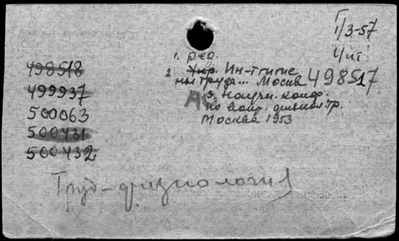 1/3-57
Чит.
1. ред.
2. Укр. Ин-т гигие
ны труда... Москва
498517
3. Научн. конф.
по вопр. физиол. тр.
Москва 1953
498518
499937
500063
500431
500432
Труд-физиология